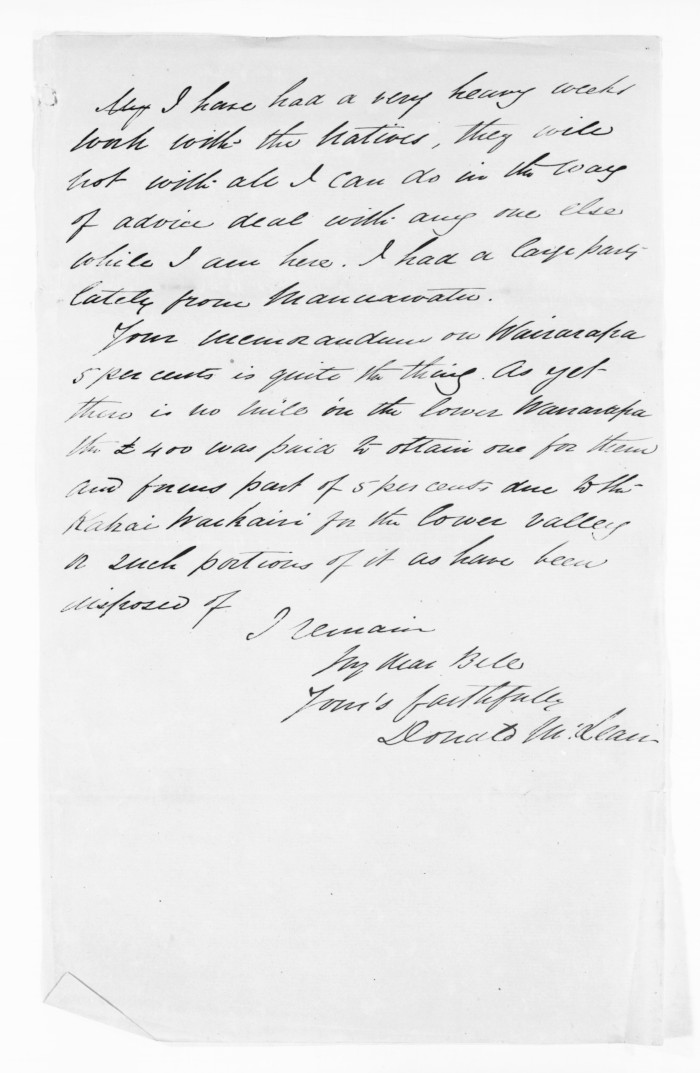 My I have had a very heavy weeks
work with the Natives, they will
not with all I can do in the way
of advice deal with any one else
while I am here. I had a large party
lately from Manuawatu.
Your memorandum on Wairarapa
5 per cents is quite the thing. As yet
there is no mile in the lower Wairarapa
the £400 was paid to obtain one for them
and forms part of 5 per cents due to the
Kahai for the lower valley
or such portions of it as have been
disposed of
I remain
My dear Bell
Your's faithfully
Donald McLean